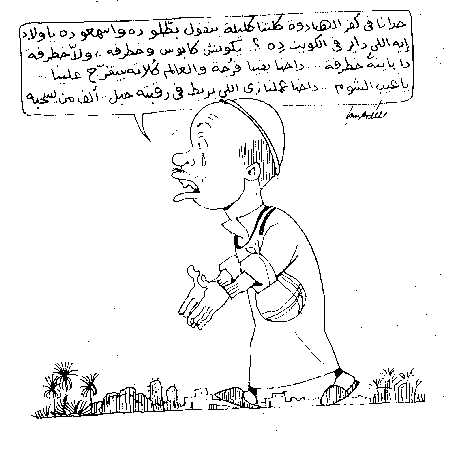 حدانا في كفر الهنادوة كلتنا كليلة بنقول بطلو ده واسمعو ده ياولاد
إيه اللي داير في الكويت ده ؟ بيكونش كابوس وخطرفه .. ولا خطرفه
دا يابنه خطرفة ... داحنا بقينا فرجة والعالم كلاته بيتفرج علينا ...
ياعيب الشوم .. داحنا عملنا زي اللي يربط في رقبته حبل .. ألف من يسحبه